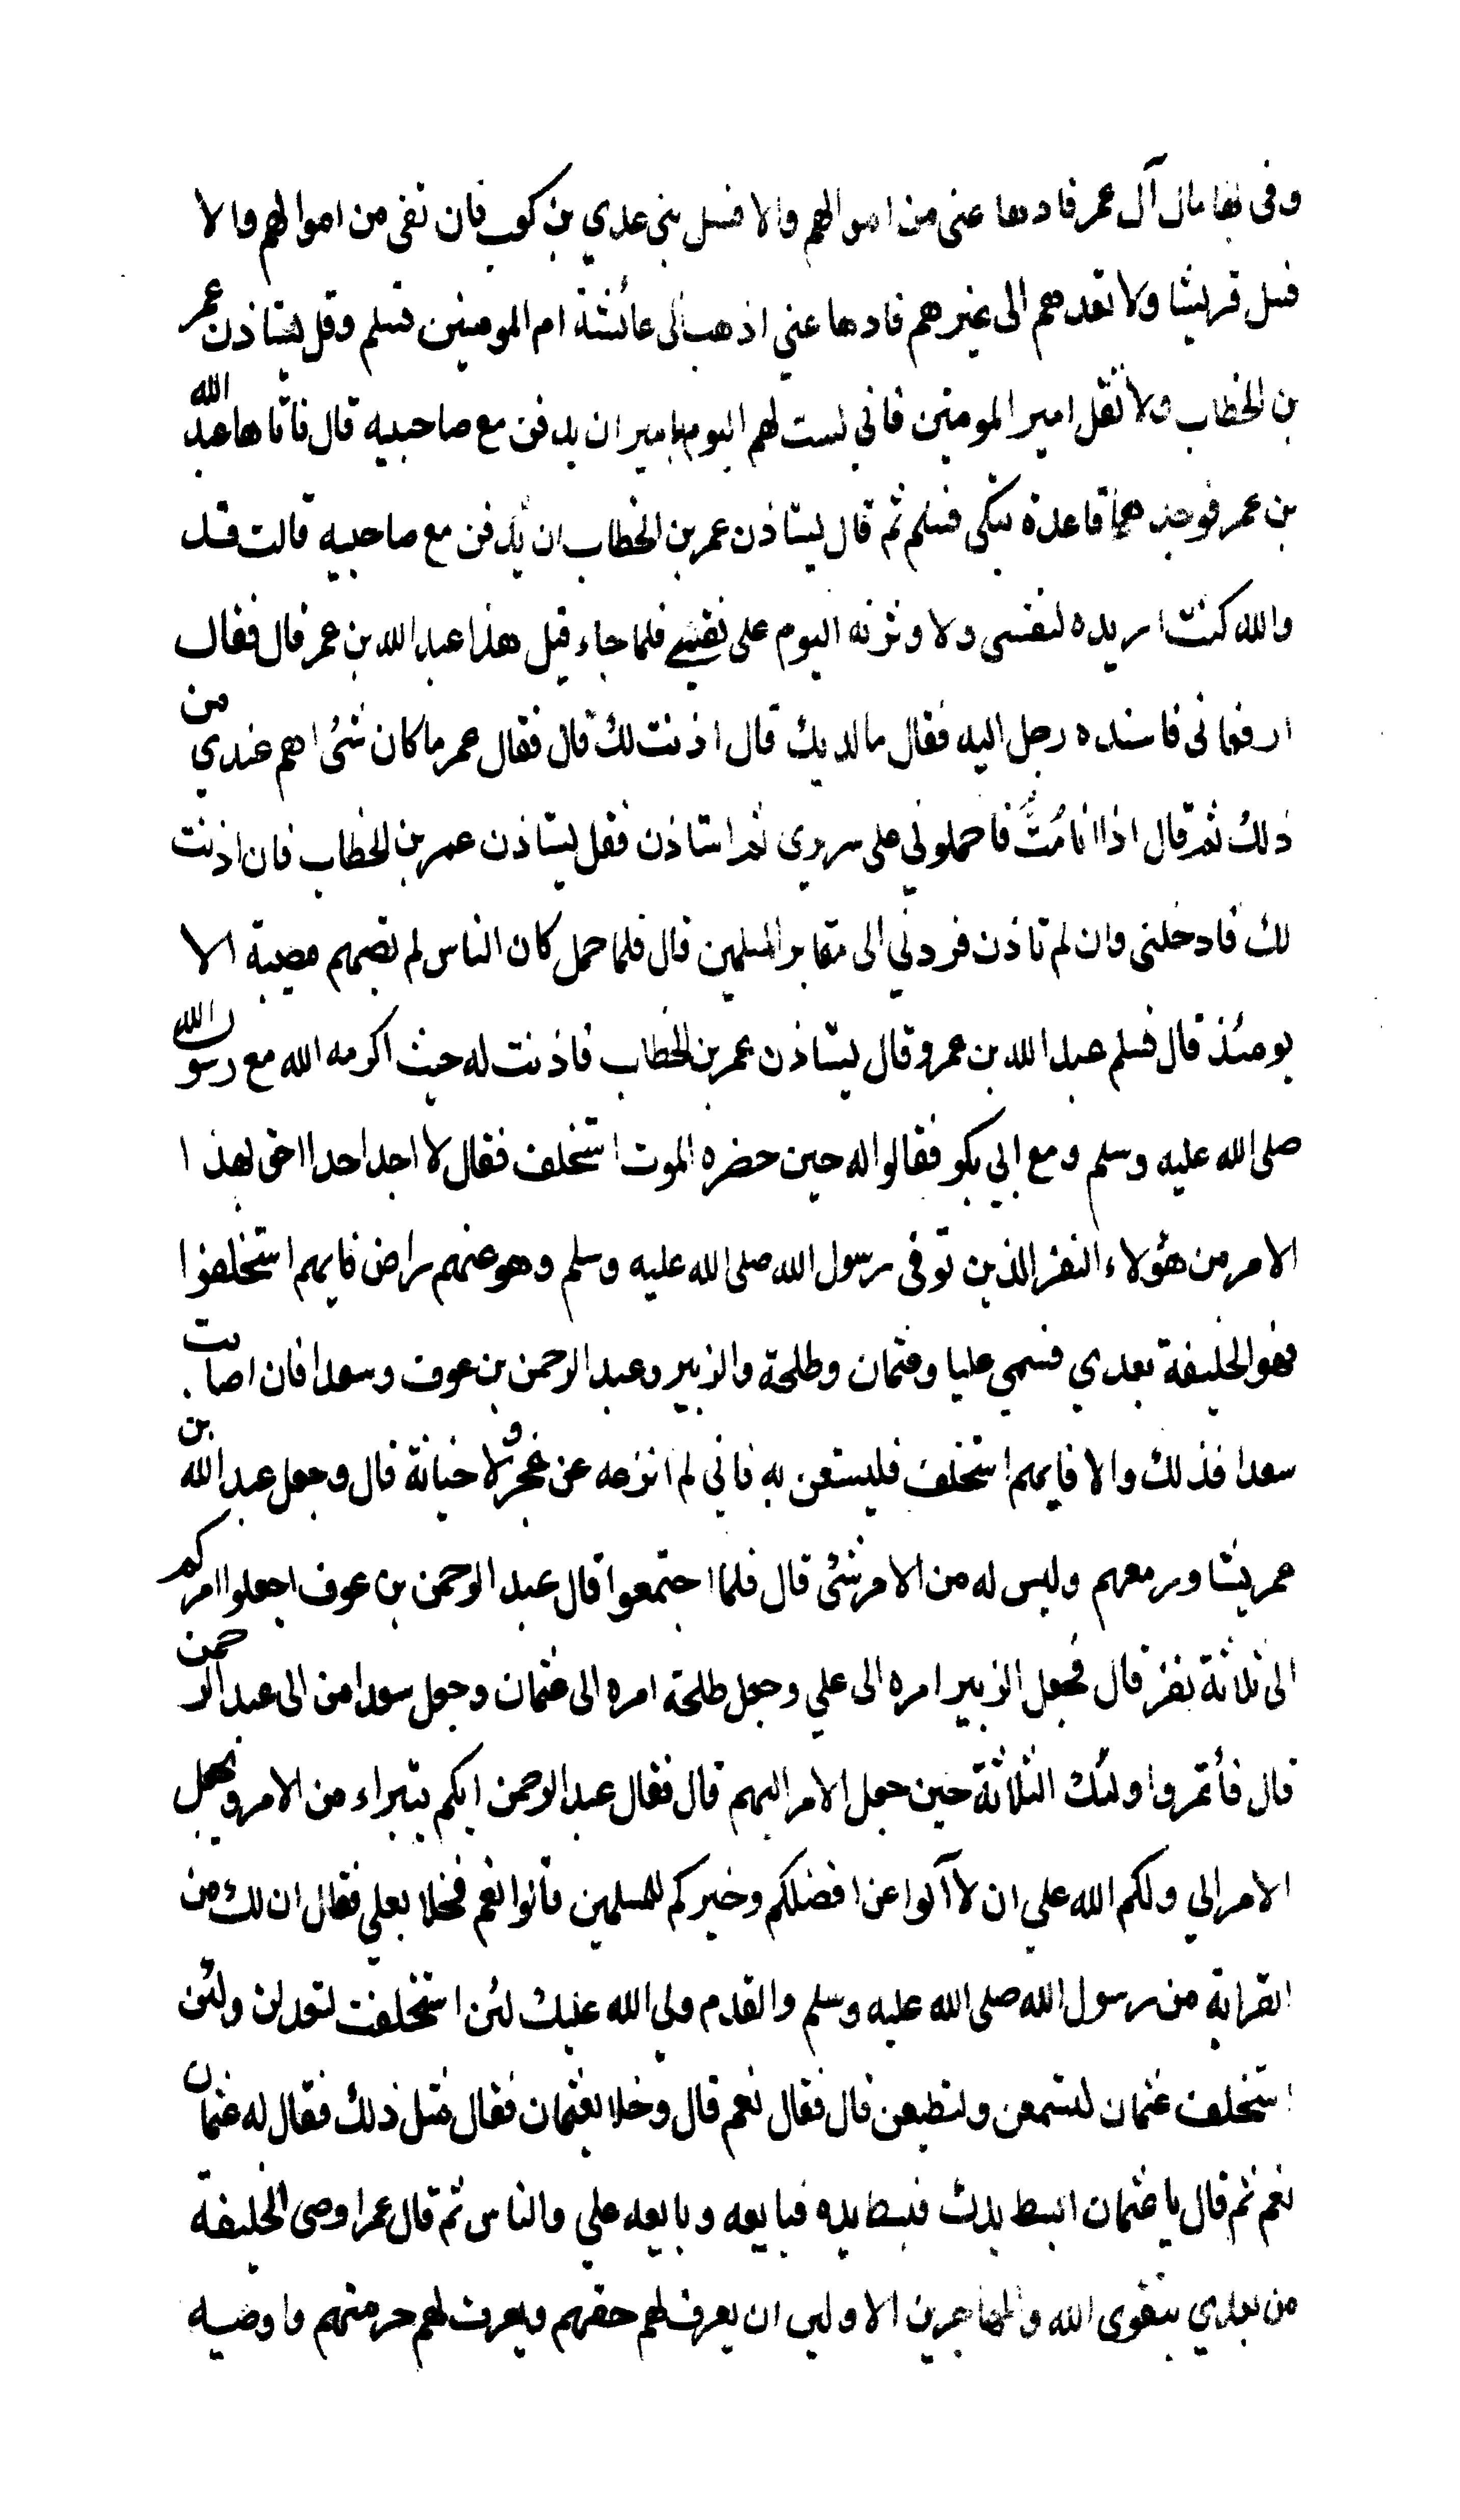 وفى بها مال آل عمر فادها عنى من اموالهم والا فسل بنى عدي بن كعب فان تفى من اموالهم والا
فسل قريشا ولا تعدهم الى غيرهم فادها عني اذهب الى عائشة ام المومنين فسلم وقل يستاذن عمر
بن الخطاب ولا تقل امير المومنين فاني لست لهم اليوم بامير ان يدفن مع صاحبيه قال فاتاها عبد الله
بن عمر فوجدها قاعدة تبكى فسلم ثم قال يستاذن عمر بن الخطاب ان يدفن مع صاحبيه قالت قد
والله كنت اريده لنفسى ولاوثرنه اليوم على نفسي فلما جاء قيل هذا عبد الله بن عمر قال فقال
ارفعانى فاسنده رجل اليه فقال ما لديك قال اذنت لك قال فقال عمر ما كان شئ اهم عندي من
ذلك ثم قال اذا انا مُتُّ فاحملوني على سريرى ثم استاذن فقل يستاذن عمر بن الخطاب فان اذنت
لك فادخلنى وان لم تاذن فردني الى مقابر المسلمين قال فلما حمل كان الناس لم تصبهم مصيبة الا
يومئذ قال فسلم عبد الله بن عمر وقال يستاذن عمر بن الخطاب فاذنت له حيث اكرمه الله مع رسول الله
صلى الله عليه وسلم ومع ابي بكر فقالوا له حين حضره الموت استخلف فقال لا اجد احدا احق لهذا
الامر من هؤلاء النفر الذين توفى رسول الله صلى الله عليه وسلم وهو عنهم راض فايهم استخلفوا
فهو الخليفة بعدي فسمي عليا وعثمان وطلحة والزبير وعبد الرحمن بن عوف وسعدا فان اصابت
سعدا فذلك والا فايهم استخلف فليستعن به فاني لم انزعه عن عجز ولا خيانة قال وجعل عبد الله بن
عمر يشاور معهم وليس له من الامر شئ قال فلما اجتمعوا قال عبد الرحمن بن عوف اجعلوا امركم
الى ثلاثة نفر قال فجعل الزبير امره الى علي وجعل طلحة امره الى عثمان وجعل سعد امره الى عبد الرحمن
قال فأتمروا اولئك الثلاثة حين جعل الامر اليهم قال فقال عبد الرحمن ايكم يتبراء من الامر ويجعل
الامر الي ولكم الله علي ان لا آلوا عن افضلكم وخيركم للمسلمين قالوا نعم فخلا بعلي فقال ان لك من
القرابة من رسول الله صلى الله عليه وسلم والقدم ولي الله عليك لئن استخلفت لتعدلن ولئن
استخلف عثمان لتسمعن ولتطيعن قال فقال نعم قال وخلا بعثمان فقال مثل ذلك فقال له عثمان
نعم ثم قال يا عثمان ابسط يدك فبسط يده فبايعه وبايعه علي والناس ثم قال عمر اوصى الخليفة
من بعدي بتقوى الله والمهاجرين الاولين ان يعرف لهم حقهم ويعرف لهم حرمتهم واوصيه